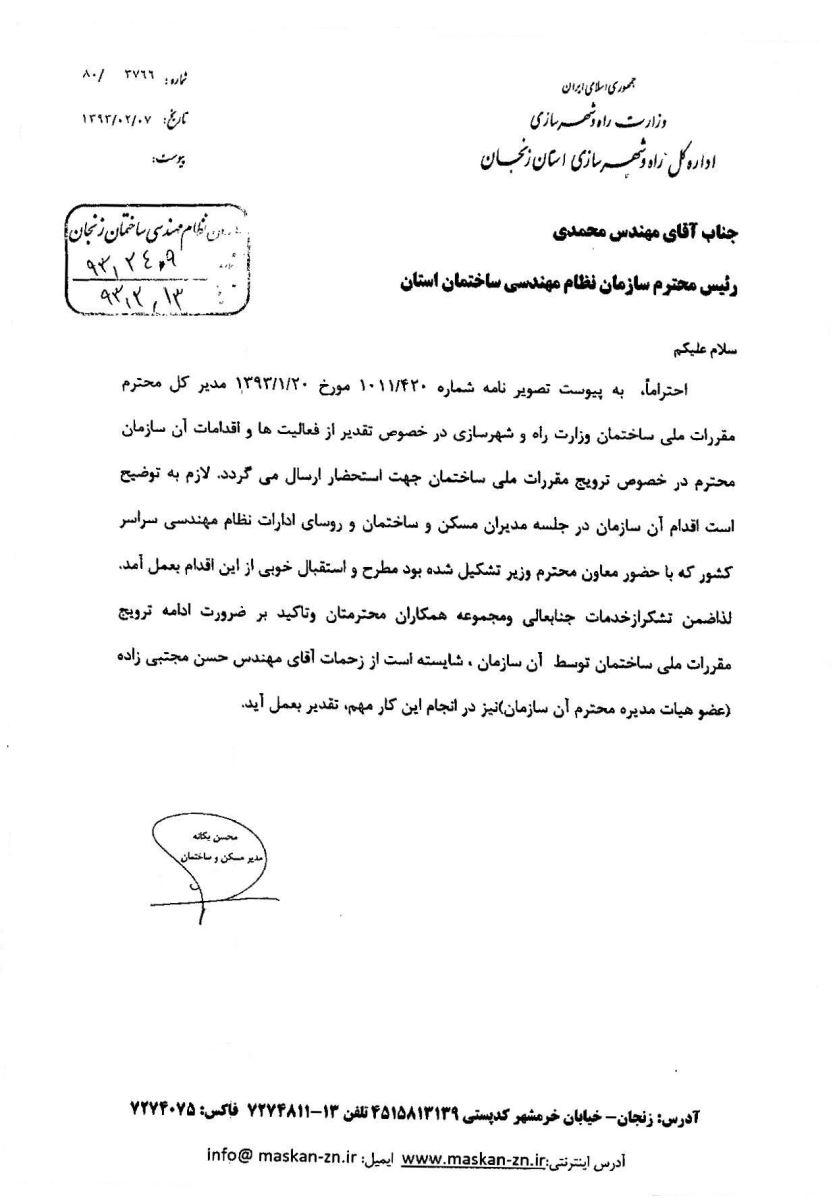 جمهوری اسلامی ایران
وزارت راه و شهرسازی
اداره کل راه و شهرسازی استان زنجان
شماره: ۳۷۶۶ /۸۰
تاریخ: ۱۳۹۳/۰۲/۰۷
پیوست:
نظام مهندسی ساختمان زنجان
۹۳,۲۴۰۹
۹۳,۲,۱۳
جناب آقای مهندس محمدی
رئیس محترم سازمان نظام مهندسی ساختمان استان
سلام علیکم
احتراماً، به پیوست تصویر نامه شماره ۱۰۱۱/۴۲۰ مورخ ۱۳۹۳/۱/۲۰ مدیر کل محترم
مقررات ملی ساختمان وزارت راه و شهرسازی در خصوص تقدیر از فعالیت ها و اقدامات آن سازمان
محترم در خصوص ترویج مقررات ملی ساختمان جهت استحضار ارسال می گردد. لازم به توضیح
است اقدام آن سازمان در جلسه مدیران مسکن و ساختمان و روسای ادارات نظام مهندسی سراسر
کشور که با حضور معاون محترم وزیر تشکیل شده بود مطرح و استقبال خوبی از این اقدام بعمل آمد.
لذاضمن تشکرازخدمات جنابعالی ومجموعه همکاران محترمتان وتاکید بر ضرورت ادامه ترویج
مقررات ملی ساختمان توسط آن سازمان ، شایسته است از زحمات آقای مهندس حسن مجتبی زاده
(عضو هیات مدیره محترم آن سازمان)نیز در انجام این کار مهم، تقدیر بعمل آید.
محسن یگانه
مدیر مسکن و ساختمان
آدرس: زنجان- خیابان خرمشهر کدپستی ۴۵۱۵۸۱۳۱۳۹ تلفن ۱۳-۷۲۷۴۸۱۱ فاکس: ۷۲۷۴۰۷۵
آدرس اینترنتی:www.maskan-zn.ir ایمیل: info@ maskan-zn.ir